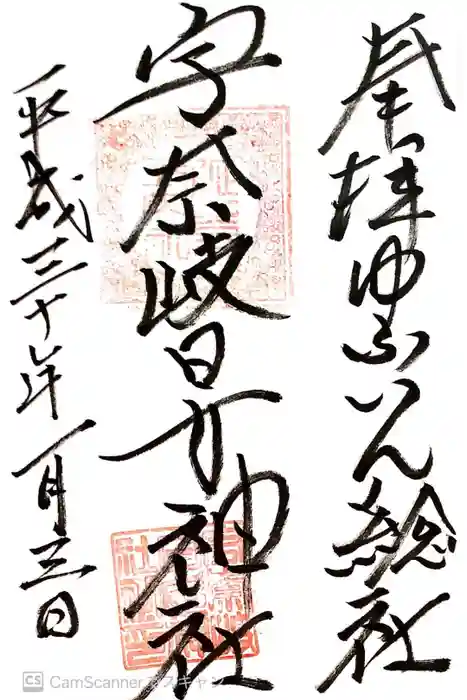 奉拝ゆふいん総社
宇奈岐日女神社
平成三十年一月三日
CS CamScanner でスキャン